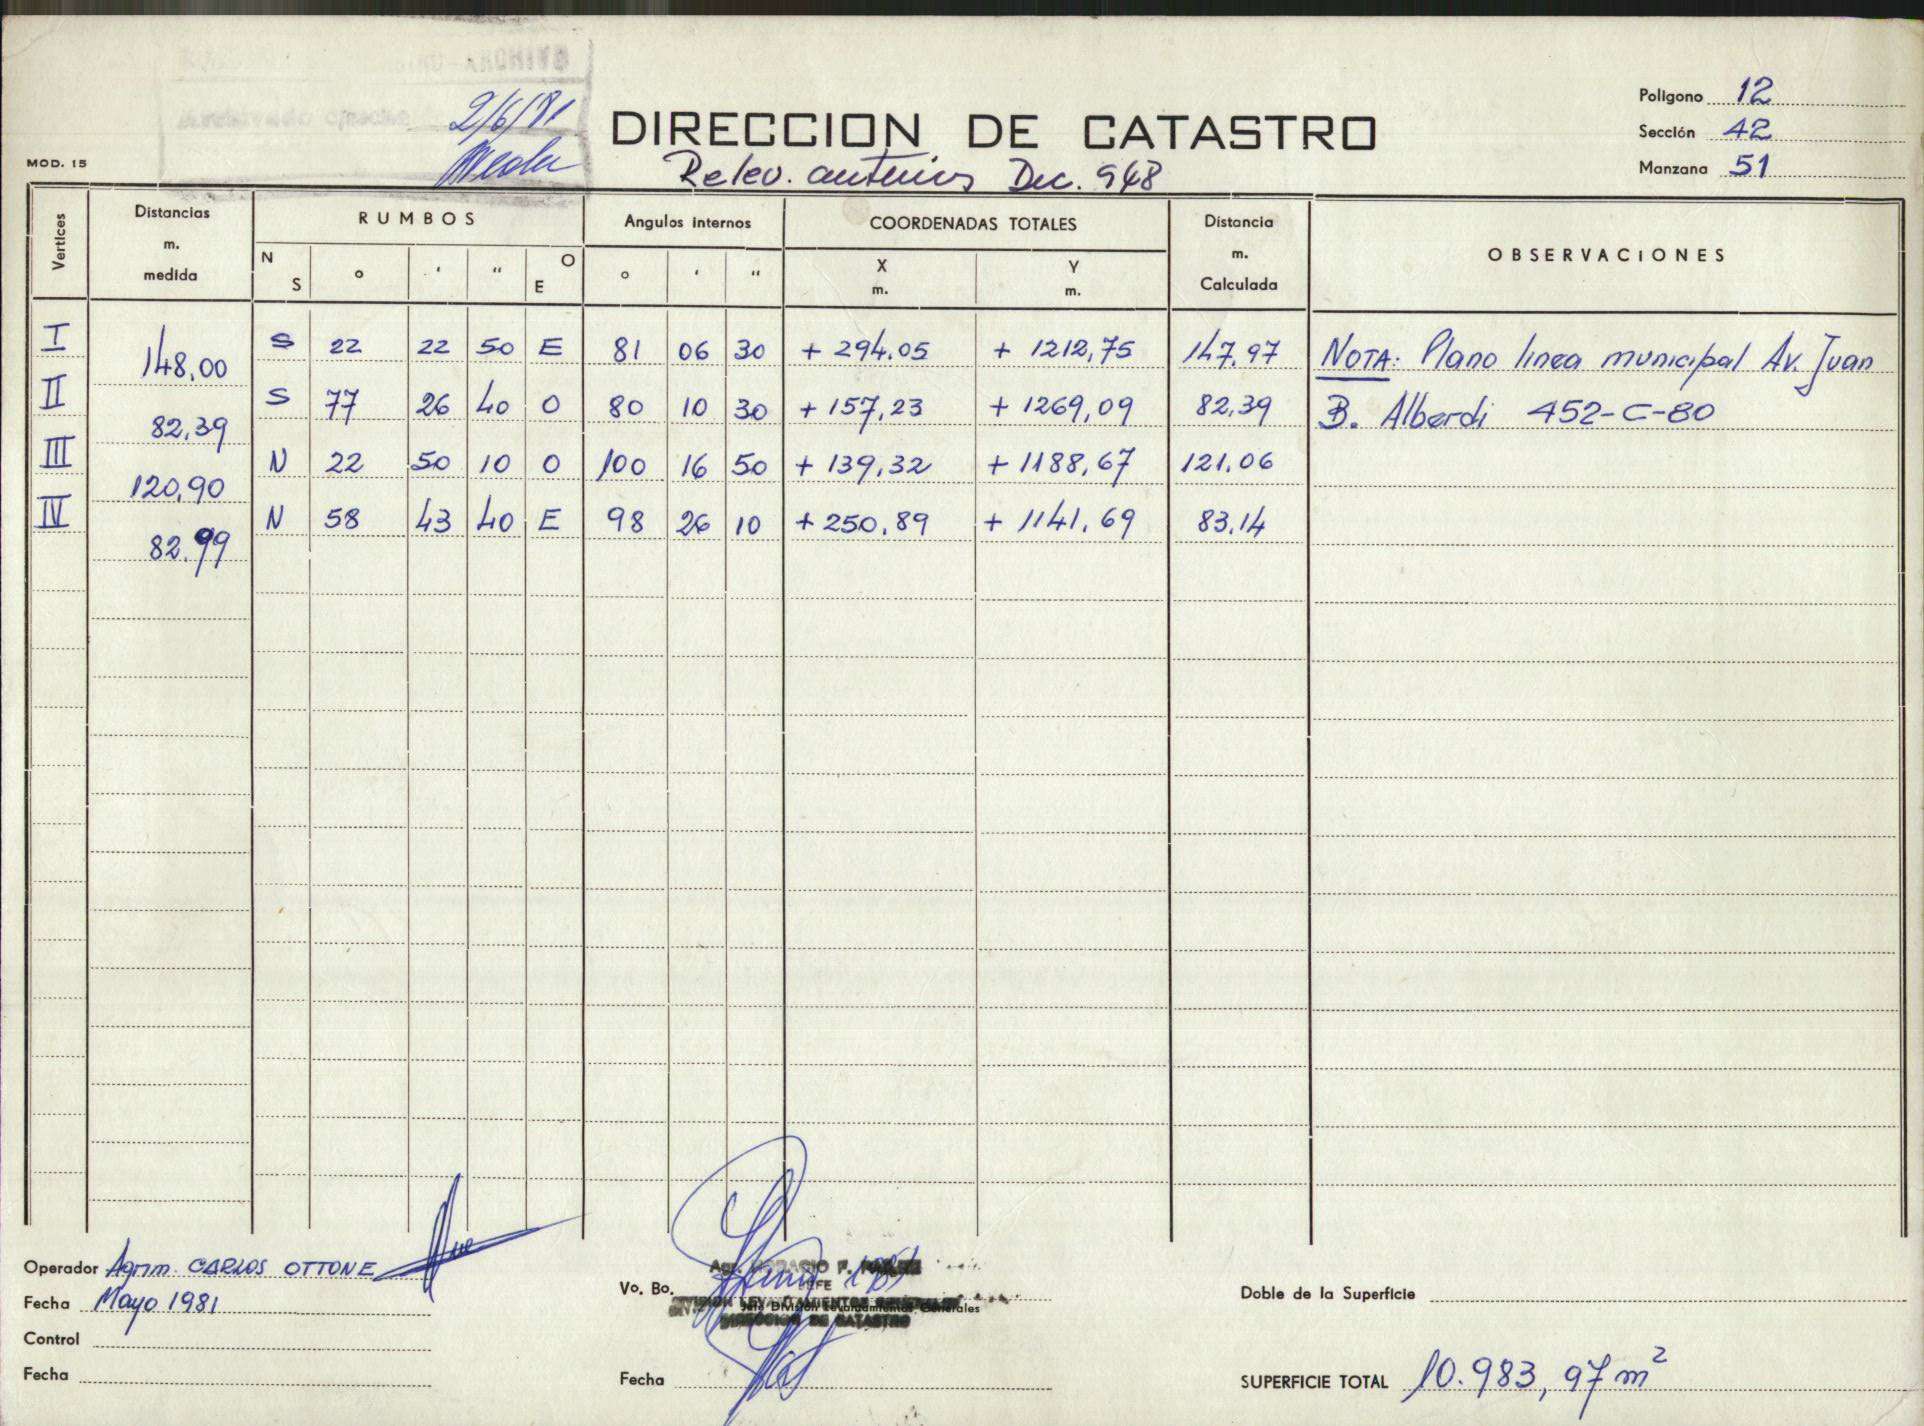 2/6/81
DIRECCION DE CATASTRO
Relev. anterior Dec. 948
MOD. 15
Polígono 12
Sección 42
Manzana 51
Vertices
Distancias m. medida
RUMBOS
N S ° ' " O E
Angulos internos
° ' "
COORDENADAS TOTALES
X m. Y m.
Distancia m. Calculada
OBSERVACIONES
I 148,00 S 22 22 50 E 81 06 30 + 294.05 + 1212,75 147.97 NOTA: Plano linea municipal Av. Juan
II 82,39 S 77 26 40 O 80 10 30 + 157,23 + 1269,09 82,39 B. Alberdi 452-C-80
III 120,90 N 22 50 10 O 100 16 50 + 139,32 + 1188,67 121.06
IV 82.99 N 58 43 40 E 98 26 10 + 250,89 + 1141,69 83.14
Operador Agrim. CARLOS OTTONE
Fecha Mayo 1981
Control
Fecha
Vo. Bo.
Agr. HORACIO F.
JEFE
DIVISION LEVANTAMIENTOS GENERALES
Jefe División Levantamientos Generales
DIRECCION DE CATASTRO
Fecha
Doble de la Superficie
SUPERFICIE TOTAL 10.983,97 m²